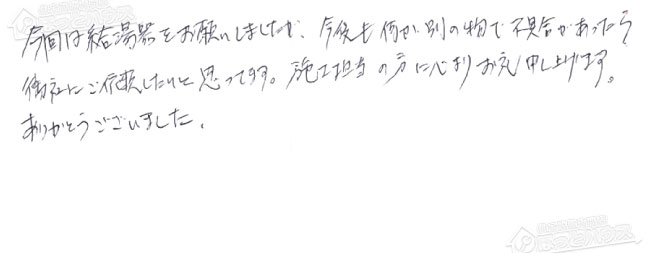 今回は給湯器をお願いしましたが、今後も何か別の物で不具合があったら
御社にご依頼したいと思ってます。施工担当の方に心よりお礼申し上げます。
ありがとうございました。